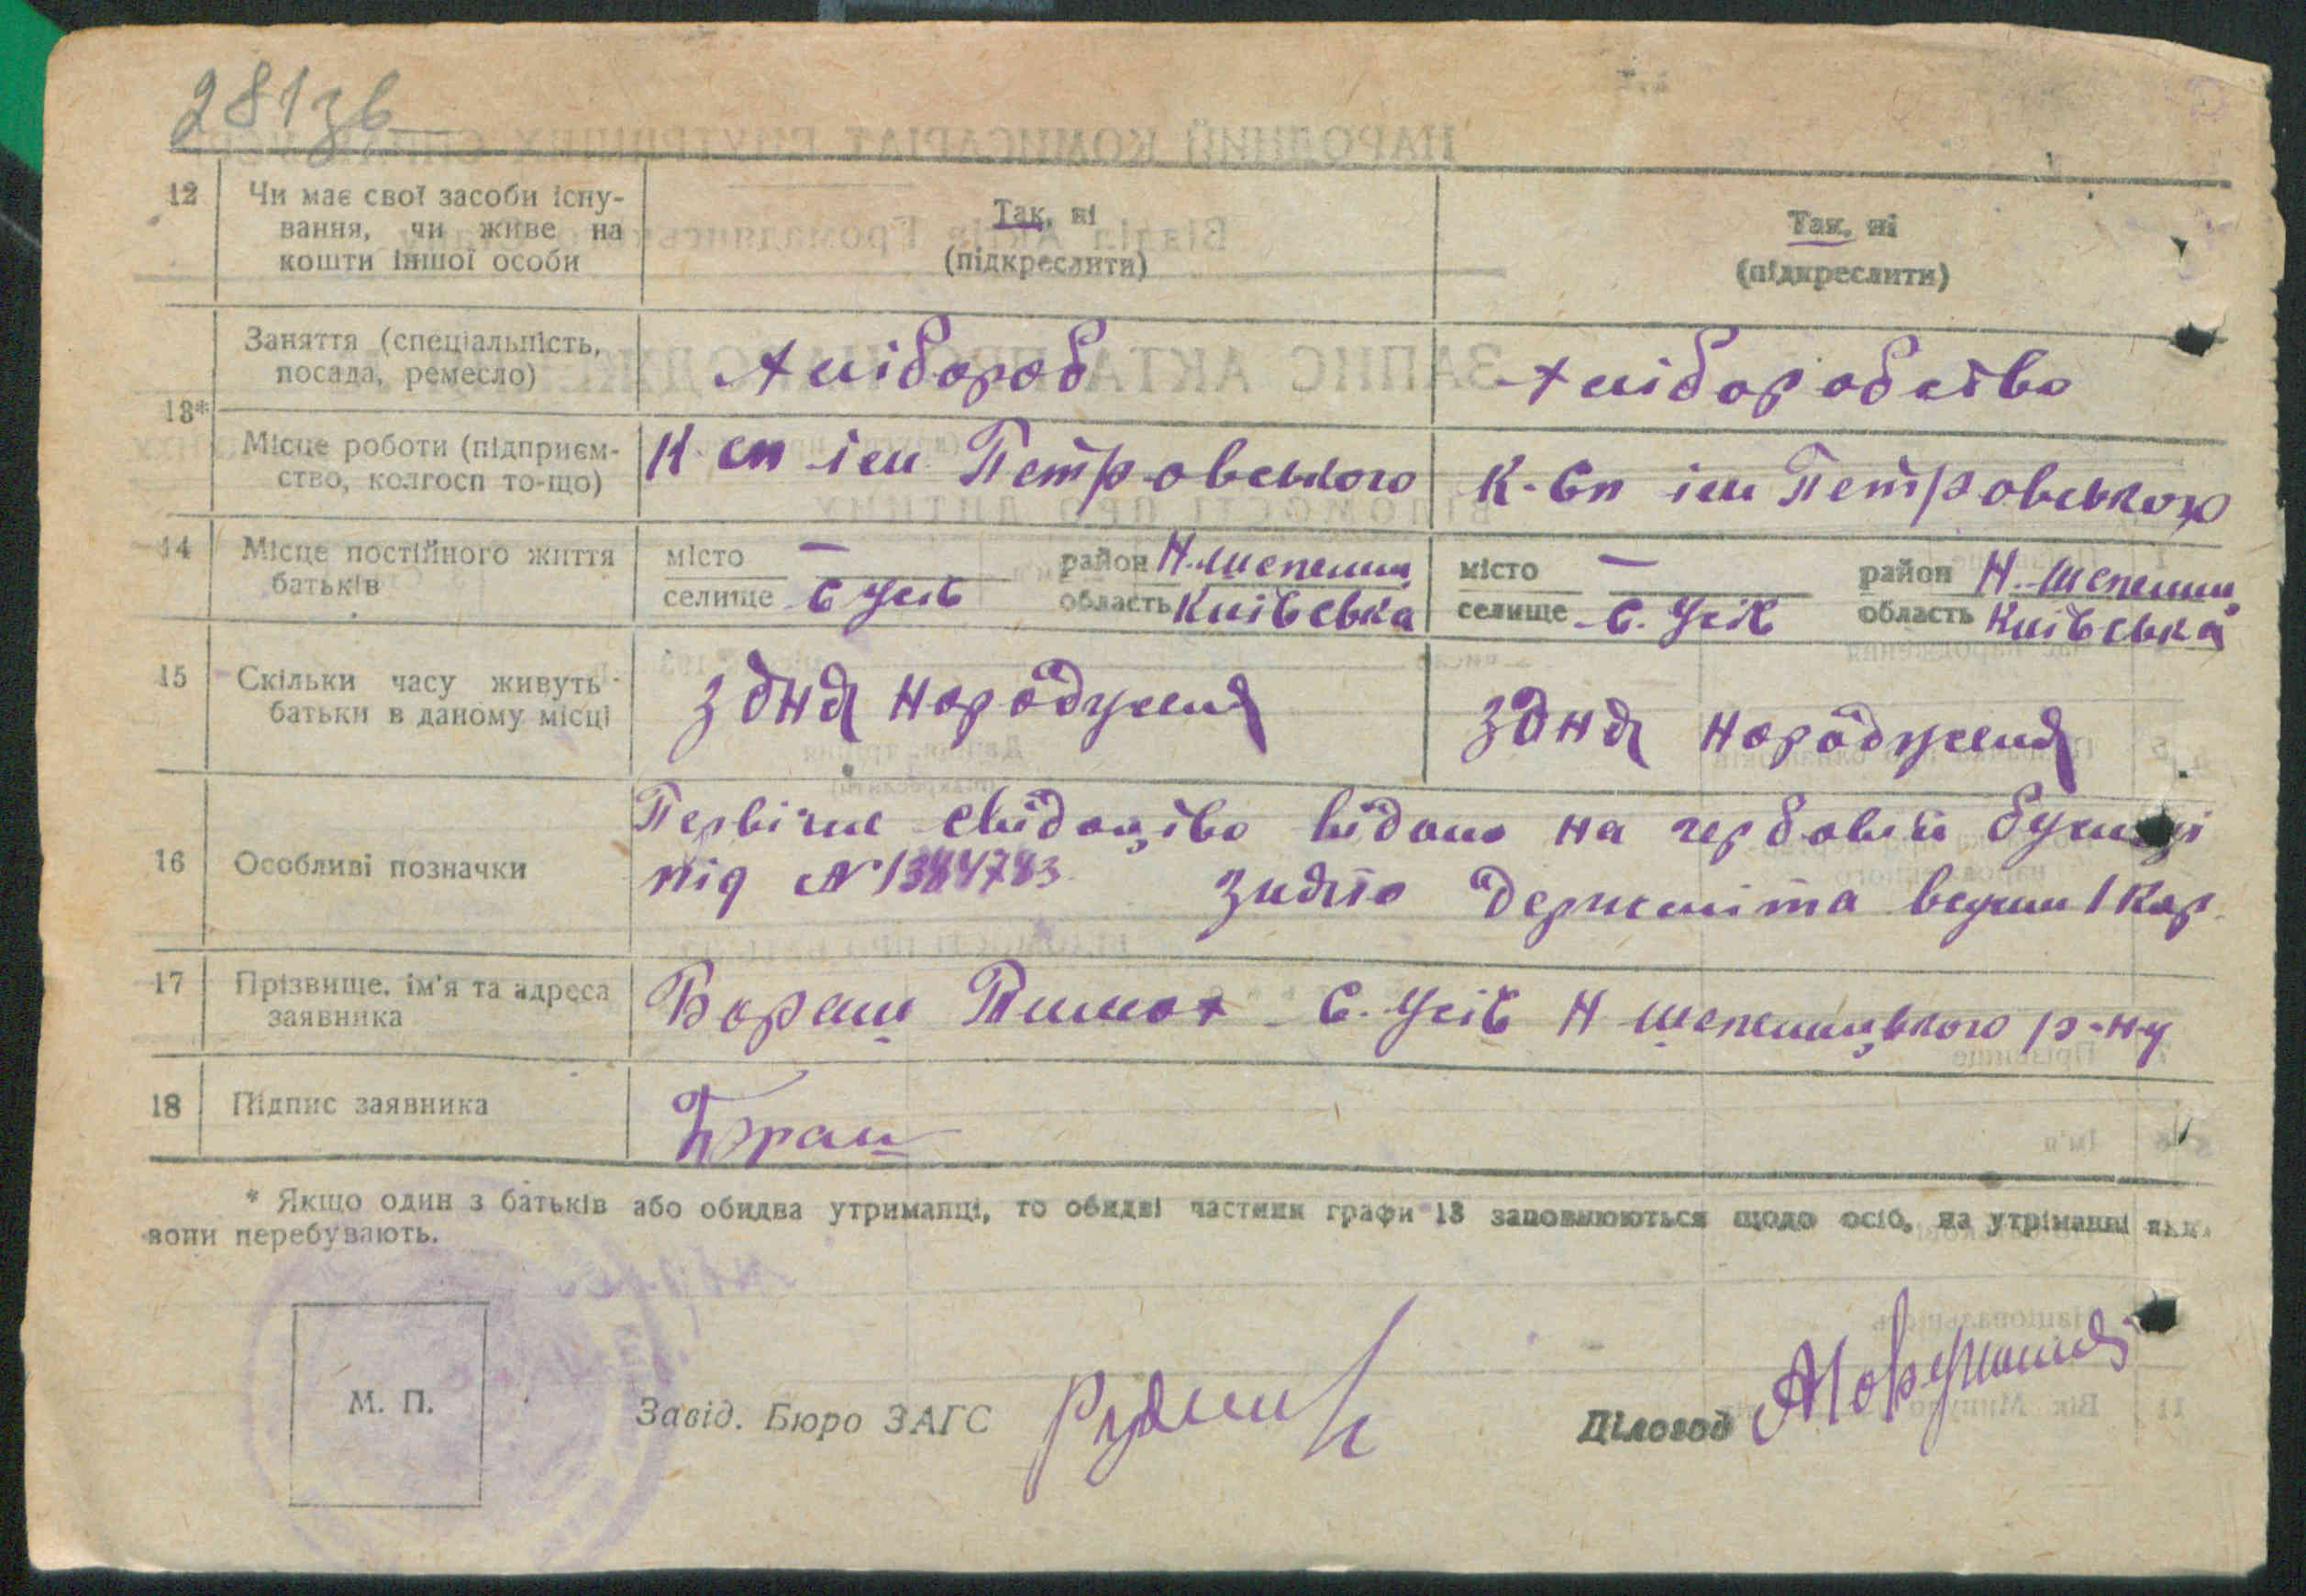 281зв
12 Чи має свої засоби існу-
вання, чи живе на
кошти іншої особи
Так, ні
(підкреслити)
Так, ні
(підкреслити)
13*
Заняття (спеціальність,
посада, ремесло)
Хлібороб
Хліборобство
Місце роботи (підприєм-
ство, колгосп то-що)
К-сп ім Петровського
К-сп ім Петровського
14 Місце постійного життя
батьків
місто —
селище с Усів
район Н.Шепелиц
область Київська
місто —
селище с. Усів
район Н.Шепелиц
область Київська
15 Скільки часу живуть
батьки в даному місці
З дня народженя
З дня народженя
16 Особливі позначки
Первічне свідоцтво видано на гербовій бумазі
під № 1384783 Знято Держмита
17 Прізвище, ім'я та адреса
заявника
с. Усів Н Шепелицького р-ну
18 Підпис заявника
* Якщо один з батьків або обидва утриманці, то обидві частини графи 13 заповнюються щодо осіб, на утриманні яких
вони перебувають.
М. П.
Завід. Бюро ЗАГС
Діловод